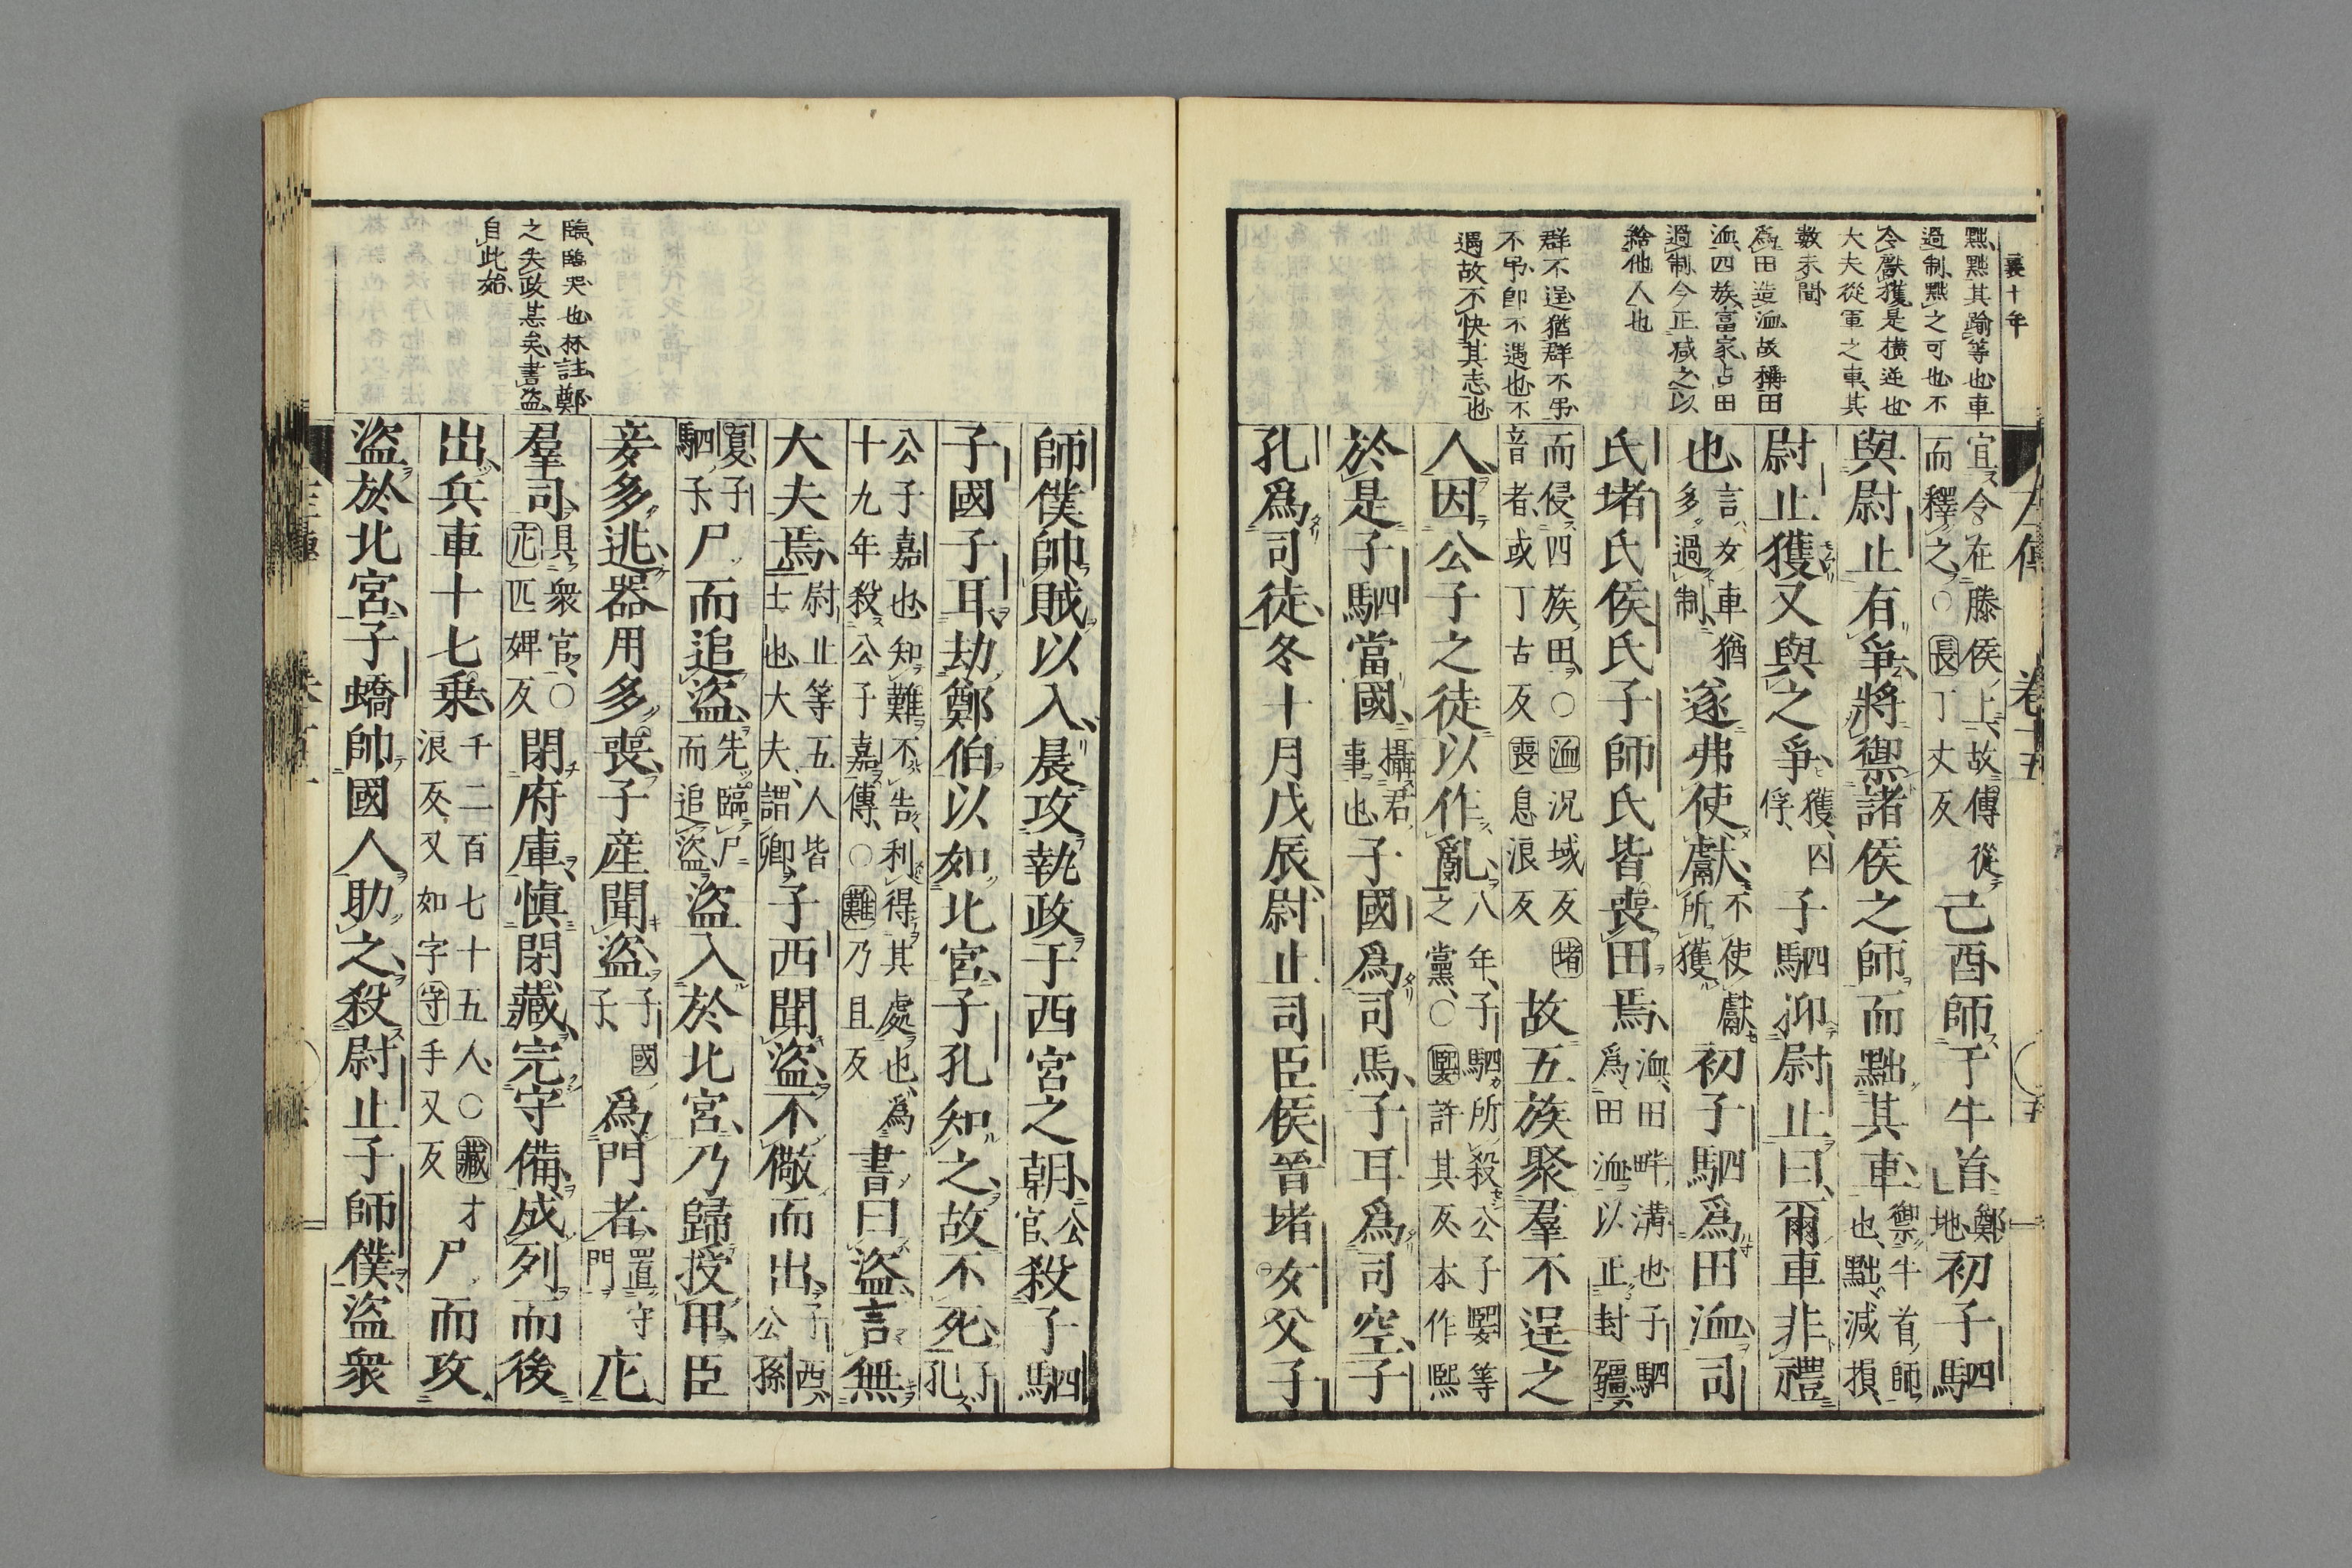 襄十年
左傳 卷十五 ○五
黜、黜其踰等也車
過制、黜之可也、不
令獻獲、是横逆也
大夫從軍之車、其
數未聞
爲田造洫、故稱田
洫、四族富家、占田
過制、今正減之以
給他人也
群不逞、猶群不弔
不弔、即不遇也、不
遇故不快其志也
宜令在滕侯上、故傳從而釋之、○長丁丈反己酉、師于牛首、鄭地初子駟
與尉止有爭、將禦諸侯之師而黜其車、禦牛首師也、黜減損
尉止獲、又與之爭、獲囚俘、子駟抑尉止曰、爾車非禮
也、言女車猶多過制、遂弗使獻、不使獻所獲初子駟爲田洫、司
氏堵氏侯氏子師氏皆喪田焉、洫、田畔溝也子駟爲田洫以正封疆
而侵四族田、○洫況域反堵音者、或丁古反喪息浪反故五族聚羣不逞之
人、因公子之徒以作亂、八年、子駟所殺公子媐等之黨、○媐許其反本作熈
於是子駟當國、攝君事也子國爲司馬、子耳爲司空、子
孔爲司徒、冬十月戊辰、尉止司臣侯晉堵女父子
臨、臨哭也林註、鄭
之失政甚矣書盜、
自此始、
師僕帥賊以入、晨攻執政于西宮之朝、公官、殺子駟
子國子耳、劫鄭伯以如北宮、子孔知之、故不死、子孔
公子嘉也、知難不告、利得其處也、爲十九年殺公子嘉傳、○難乃旦反書曰盜、言無
大夫焉、尉止等五人皆士也、大夫、謂卿子西聞盜、不儆而出、子西、公孫
夏、子駟子尸而追盜、先臨尸而追盜、盜入於北宮、乃歸授甲、臣
妾多逃、器用多喪、子産聞盜、子國子、爲門者、置守門庀
羣司、具衆官、○庀匹婢反閉府庫、愼閉藏、完守備、成列而後
出、兵車十七乗、千二百七十五人、○藏才浪反、又如字守手又反尸而攻
盜於北宮、子蟜帥國人助之、殺尉止子師僕、盜衆